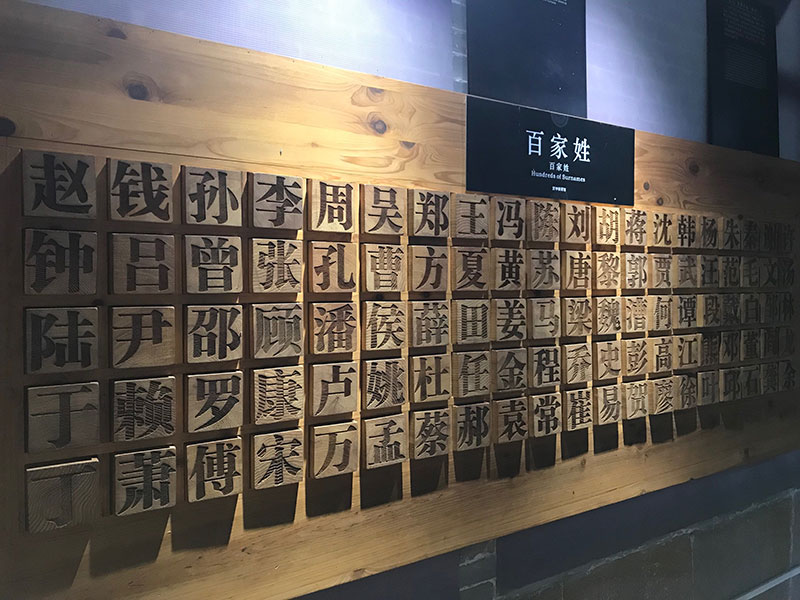 百家姓
百家姓
Hundreds of Surnames
赵 钱 孙 李 周 吴 郑 王 冯 陈 刘 胡 蒋 沈 韩 杨 朱 秦 许
钟 吕 曾 张 孔 曹 方 夏 黄 苏 唐 黎 郭 贾 武 汪 范 毛 文 汤
陆 尹 邵 顾 潘 侯 薛 田 姜 马 梁 魏 漕 何 谭 段 白 林
于 赖 罗 康 卢 姚 杜 任 金 程 乔 史 彭 高 江 邓 董
丁 萧 傅 宋 万 孟 蔡 郝 袁 常 崔 易 贺 廖 徐 叶 邱 石 龚 余